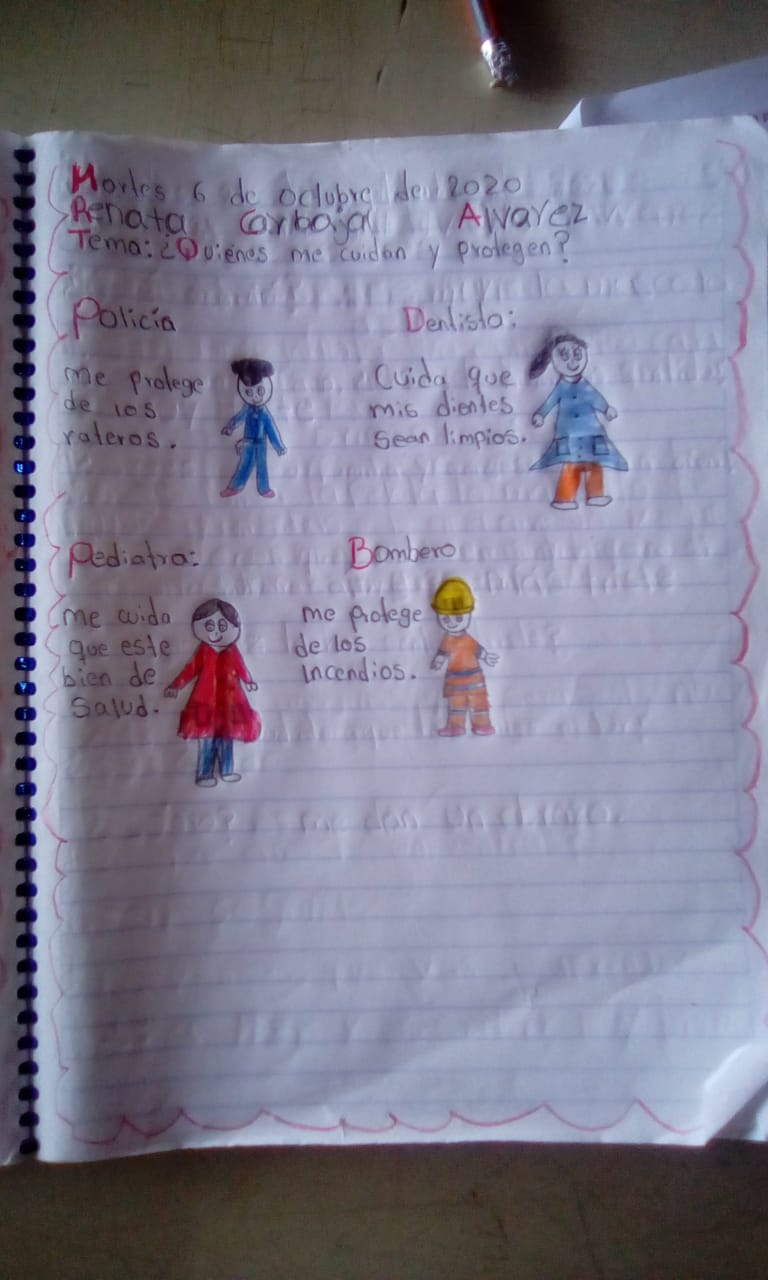 Martes 6 de octubre de 2020
Renata Carbajal Alvarez
Tema: ¿Quienes me cuidan y protegen?
Policía
me protege
de los
rateros.
Dentista:
Cuida que
mis dientes
sean limpios.
Pediatra:
me cuida
que este
bien de
Salud.
Bombero
me protege
de los
incendios.